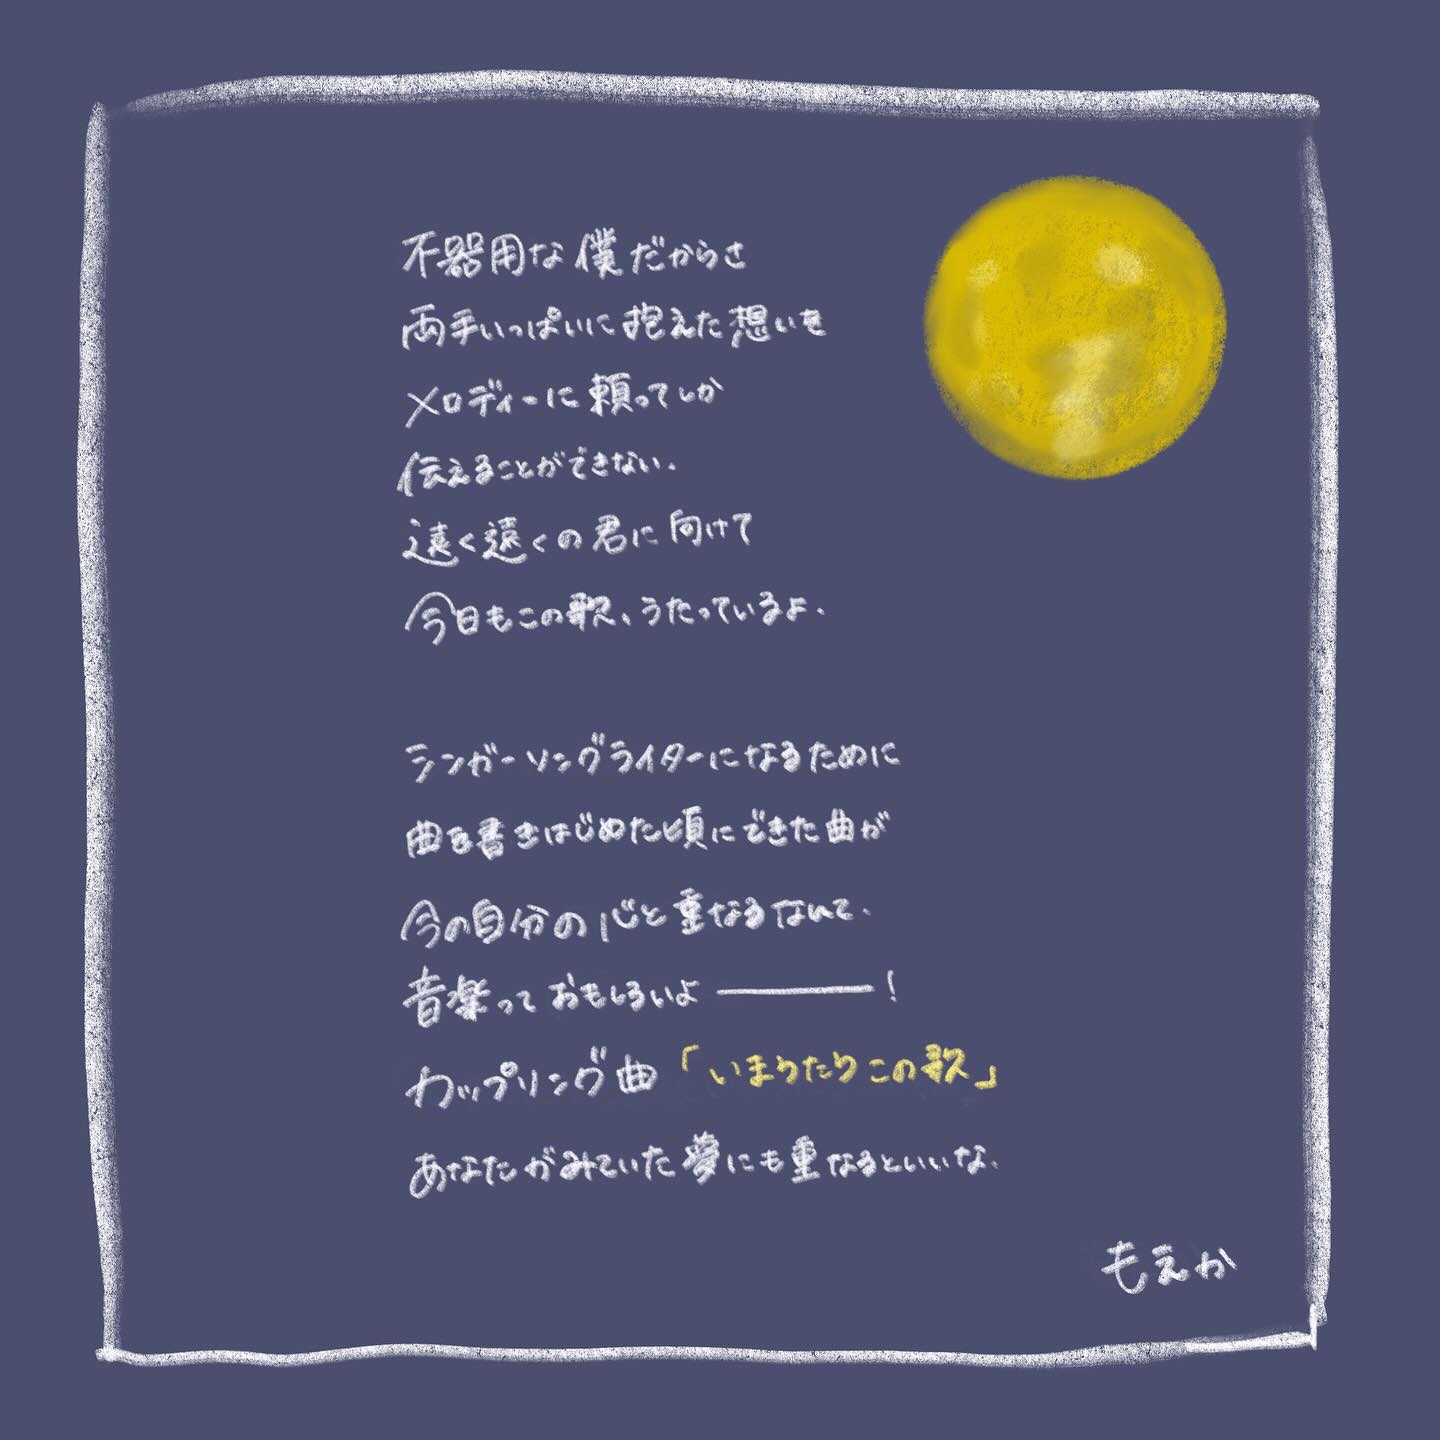 不器用な僕だからさ
両手いっぱいに抱えた想いを
メロディーに頼ってしか
伝えることができない.
遠く遠くの君に向けて
今日もこの歌、うたっているよ.
シンガーソングライターになるために
曲を書きはじめた頃にできた曲が
今の自分の心と重なるなんて.
音楽っておもしろいよ―――!
カップリング曲「いまうたうこの歌」
あなたがみていた夢にも重なるといいな.
もえか